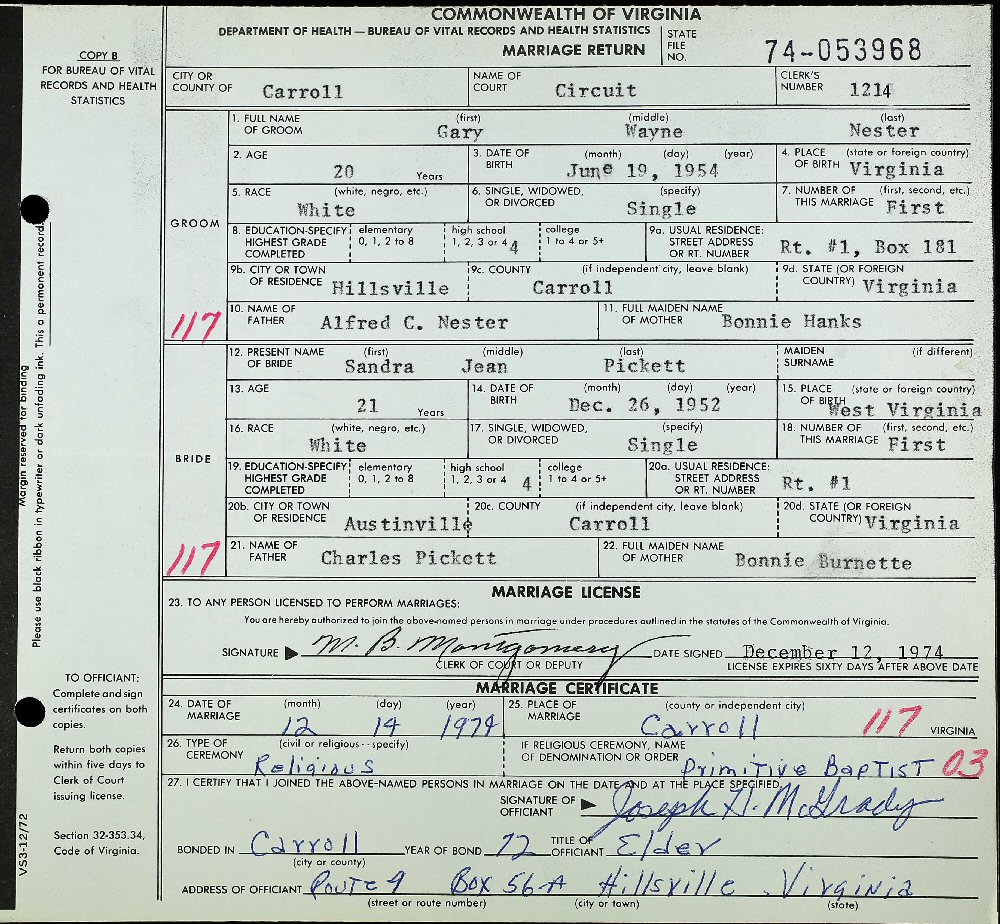 COMMONWEALTH OF VIRGINIA
DEPARTMENT OF HEALTH — BUREAU OF VITAL RECORDS AND HEALTH STATISTICS
MARRIAGE RETURN
STATE FILE NO. 74-053968
COPY B
FOR BUREAU OF VITAL RECORDS AND HEALTH STATISTICS
CITY OR COUNTY OF Carroll NAME OF COURT Circuit CLERK'S NUMBER 1214
GROOM
1. FULL NAME OF GROOM (first) Gary (middle) Wayne (last) Nester
2. AGE 20 Years 3. DATE OF BIRTH (month) (day) (year) June 19, 1954 4. PLACE OF BIRTH (state or foreign country) Virginia
5. RACE (white, negro, etc.) White 6. SINGLE, WIDOWED, OR DIVORCED (specify) Single 7. NUMBER OF THIS MARRIAGE (first, second, etc.) First
8. EDUCATION-SPECIFY HIGHEST GRADE COMPLETED elementary 0, 1, 2 to 8 high school 1, 2, 3 or 4 4 college 1 to 4 or 5+ 9a. USUAL RESIDENCE: STREET ADDRESS OR RT. NUMBER Rt. #1, Box 181
9b. CITY OR TOWN OF RESIDENCE Hillsville 9c. COUNTY (if independent city, leave blank) Carroll 9d. STATE (OR FOREIGN COUNTRY) Virginia
117 10. NAME OF FATHER Alfred C. Nester 11. FULL MAIDEN NAME OF MOTHER Bonnie Hanks
BRIDE
12. PRESENT NAME OF BRIDE (first) Sandra (middle) Jean (last) Pickett MAIDEN SURNAME (if different)
13. AGE 21 Years 14. DATE OF BIRTH (month) (day) (year) Dec. 26, 1952 15. PLACE OF BIRTH (state or foreign country) West Virginia
16. RACE (white, negro, etc.) White 17. SINGLE, WIDOWED, OR DIVORCED (specify) Single 18. NUMBER OF THIS MARRIAGE (first, second, etc.) First
19. EDUCATION-SPECIFY HIGHEST GRADE COMPLETED elementary 0, 1, 2 to 8 high school 1, 2, 3 or 4 4 college 1 to 4 or 5+ 20a. USUAL RESIDENCE: STREET ADDRESS OR RT. NUMBER Rt. #1
20b. CITY OR TOWN OF RESIDENCE Austinville 20c. COUNTY (if independent city, leave blank) Carroll 20d. STATE (OR FOREIGN COUNTRY) Virginia
117 21. NAME OF FATHER Charles Pickett 22. FULL MAIDEN NAME OF MOTHER Bonnie Burnette
MARRIAGE LICENSE
23. TO ANY PERSON LICENSED TO PERFORM MARRIAGES:
You are hereby authorized to join the above-named persons in marriage under procedures outlined in the statutes of the Commonwealth of Virginia.
SIGNATURE M. B. Montgomery DATE SIGNED December 12, 1974
CLERK OF COURT OR DEPUTY LICENSE EXPIRES SIXTY DAYS AFTER ABOVE DATE
MARRIAGE CERTIFICATE
24. DATE OF MARRIAGE (month) 12 (day) 14 (year) 1974 25. PLACE OF MARRIAGE (county or independent city) Carroll 117 VIRGINIA
26. TYPE OF CEREMONY (civil or religious -- specify) Religious IF RELIGIOUS CEREMONY, NAME OF DENOMINATION OR ORDER Primitive Baptist 03
27. I CERTIFY THAT I JOINED THE ABOVE-NAMED PERSONS IN MARRIAGE ON THE DATE AND AT THE PLACE SPECIFIED.
SIGNATURE OF OFFICIANT Joseph H. McGrady
BONDED IN Carroll (city or county) YEAR OF BOND 72 TITLE OF OFFICIANT Elder
ADDRESS OF OFFICIANT Route 4 Box 56-A Hillsville Virginia
(street or route number) (city or town) (state)
TO OFFICIAL:
Complete and sign certificates on both copies.
Return both copies within five days to Clerk of Court issuing license.
Section 32-353.34, Code of Virginia.
Margin reserved for binding
Please use black ribbon in typewriter or dark unfading ink. This a permanent record.
VS3-12/72